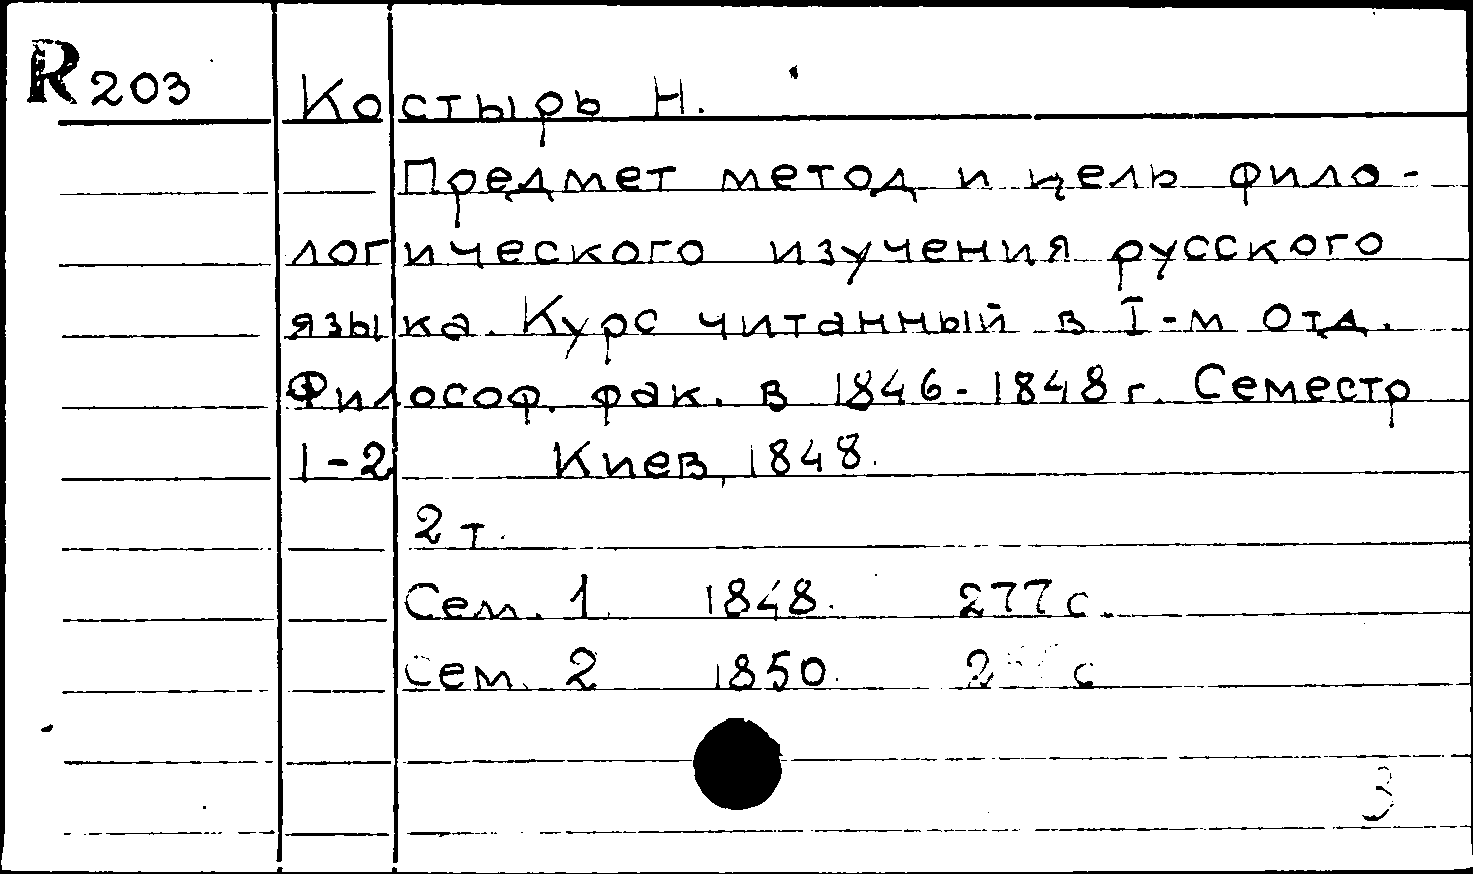 R 203
Костырь Н.
Предмет метод и цель фило-
логического изучения русского
языка. Курс читанный в I-м Отд.
Философ. фак. в 1846-1848 г. Семестр
1-2 Киев, 1848.
2 т.
Сем. 1 1848. 277 с.
Сем. 2 1850. с
3